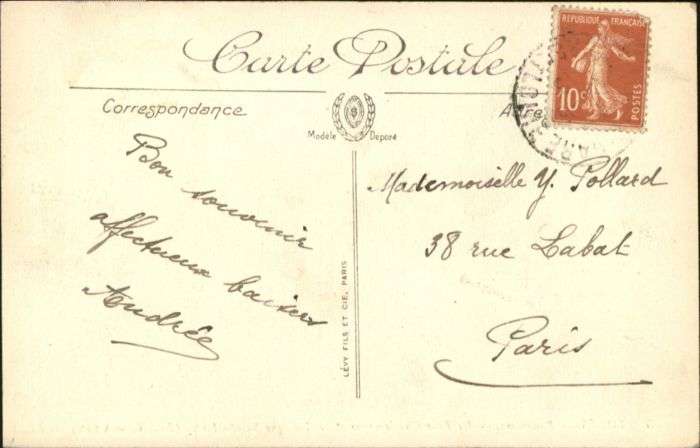 Carte Postale
REPUBLIQUE FRANÇAISE
10c
POSTES
Correspondance
Modèle Déposé
Bon souvenir
affectueux baisers
Andrée
LÉVY FILS ET CIE, PARIS
Mademoiselle Y. Pollard
38 rue Labat
Paris